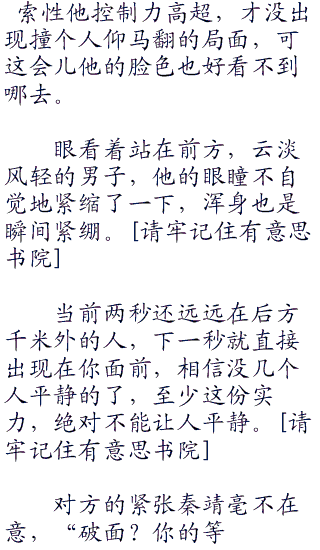 索性他控制力高超，才没出
现撞个人仰马翻的局面，可
这会儿他的脸色也好看不到
哪去。
眼看着站在前方，云淡
风轻的男子，他的眼瞳不自
觉地紧缩了一下，浑身也是
瞬间紧绷。[请牢记住有意思
书院]
当前两秒还远远在后方
千米外的人，下一秒就直接
出现在你面前，相信没几个
人平静的了，至少这份实
力，绝对不能让人平静。[请
牢记住有意思书院]
对方的紧张秦靖毫不在
意，“破面？你的等